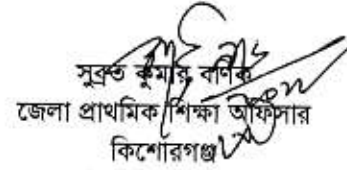 সুব্রত কুমার বণিক
জেলা প্রাথমিক শিক্ষা অফিসার
কিশোরগঞ্জ